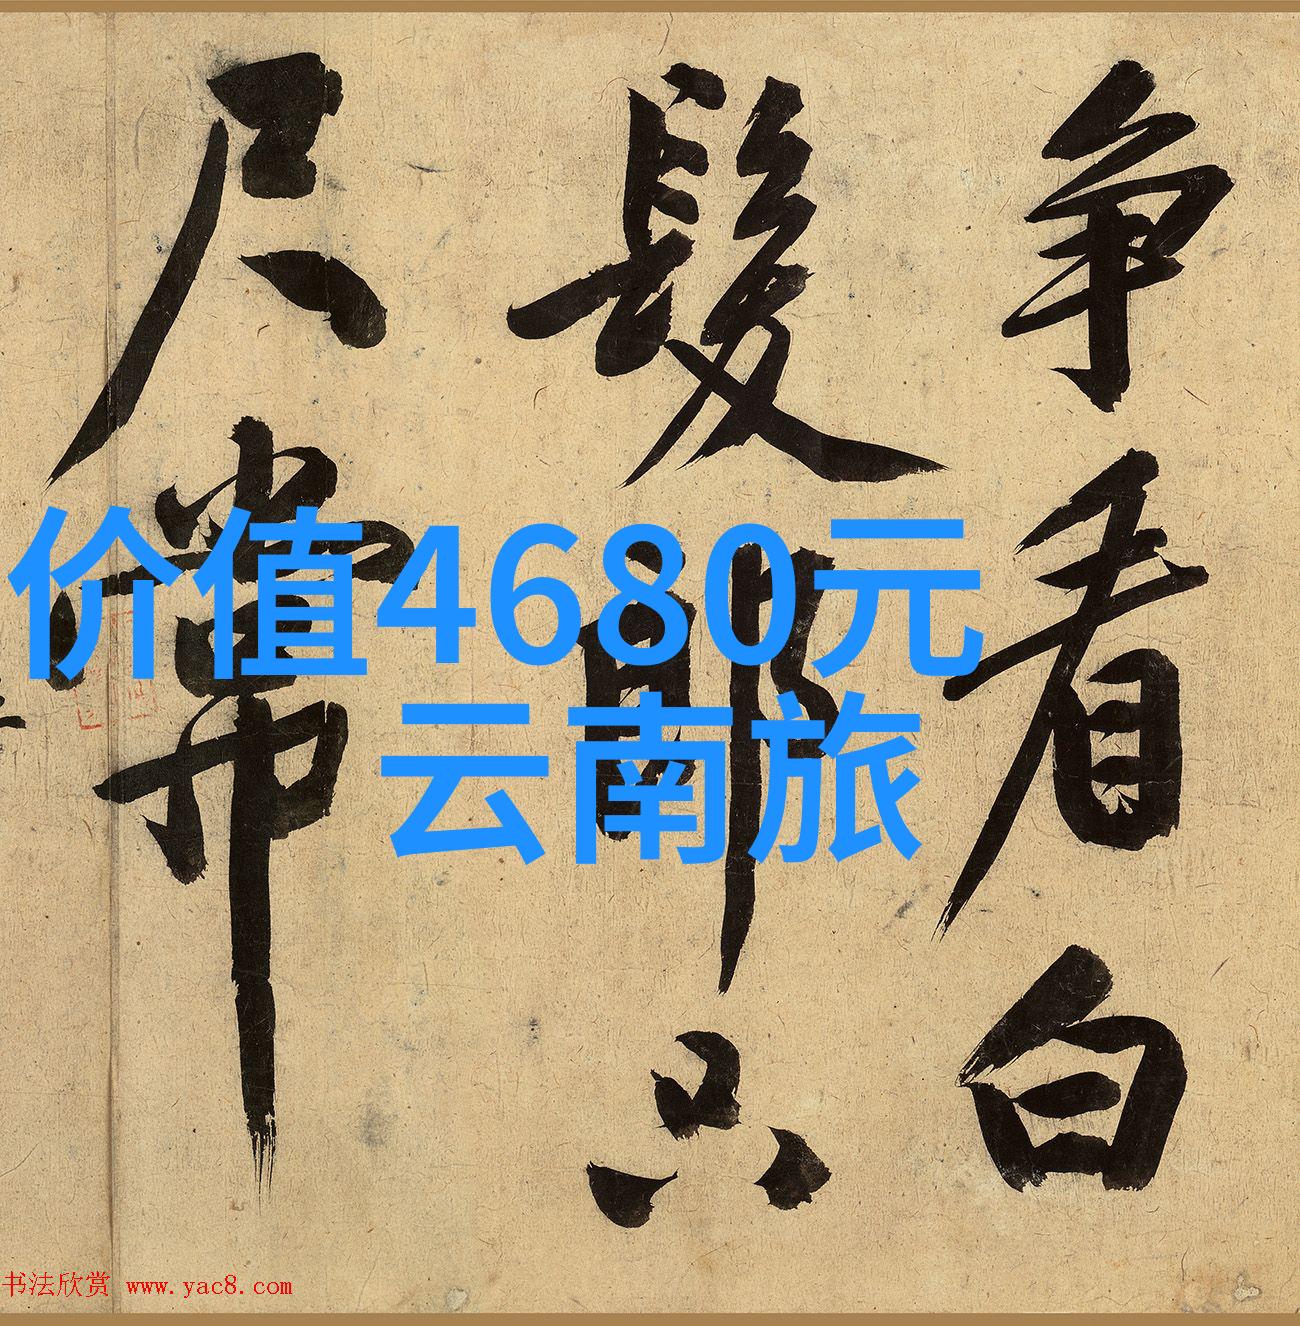 争看白
髮郎只
尺常
价值4680元
云南旅
书法欣赏 www.yac8.com